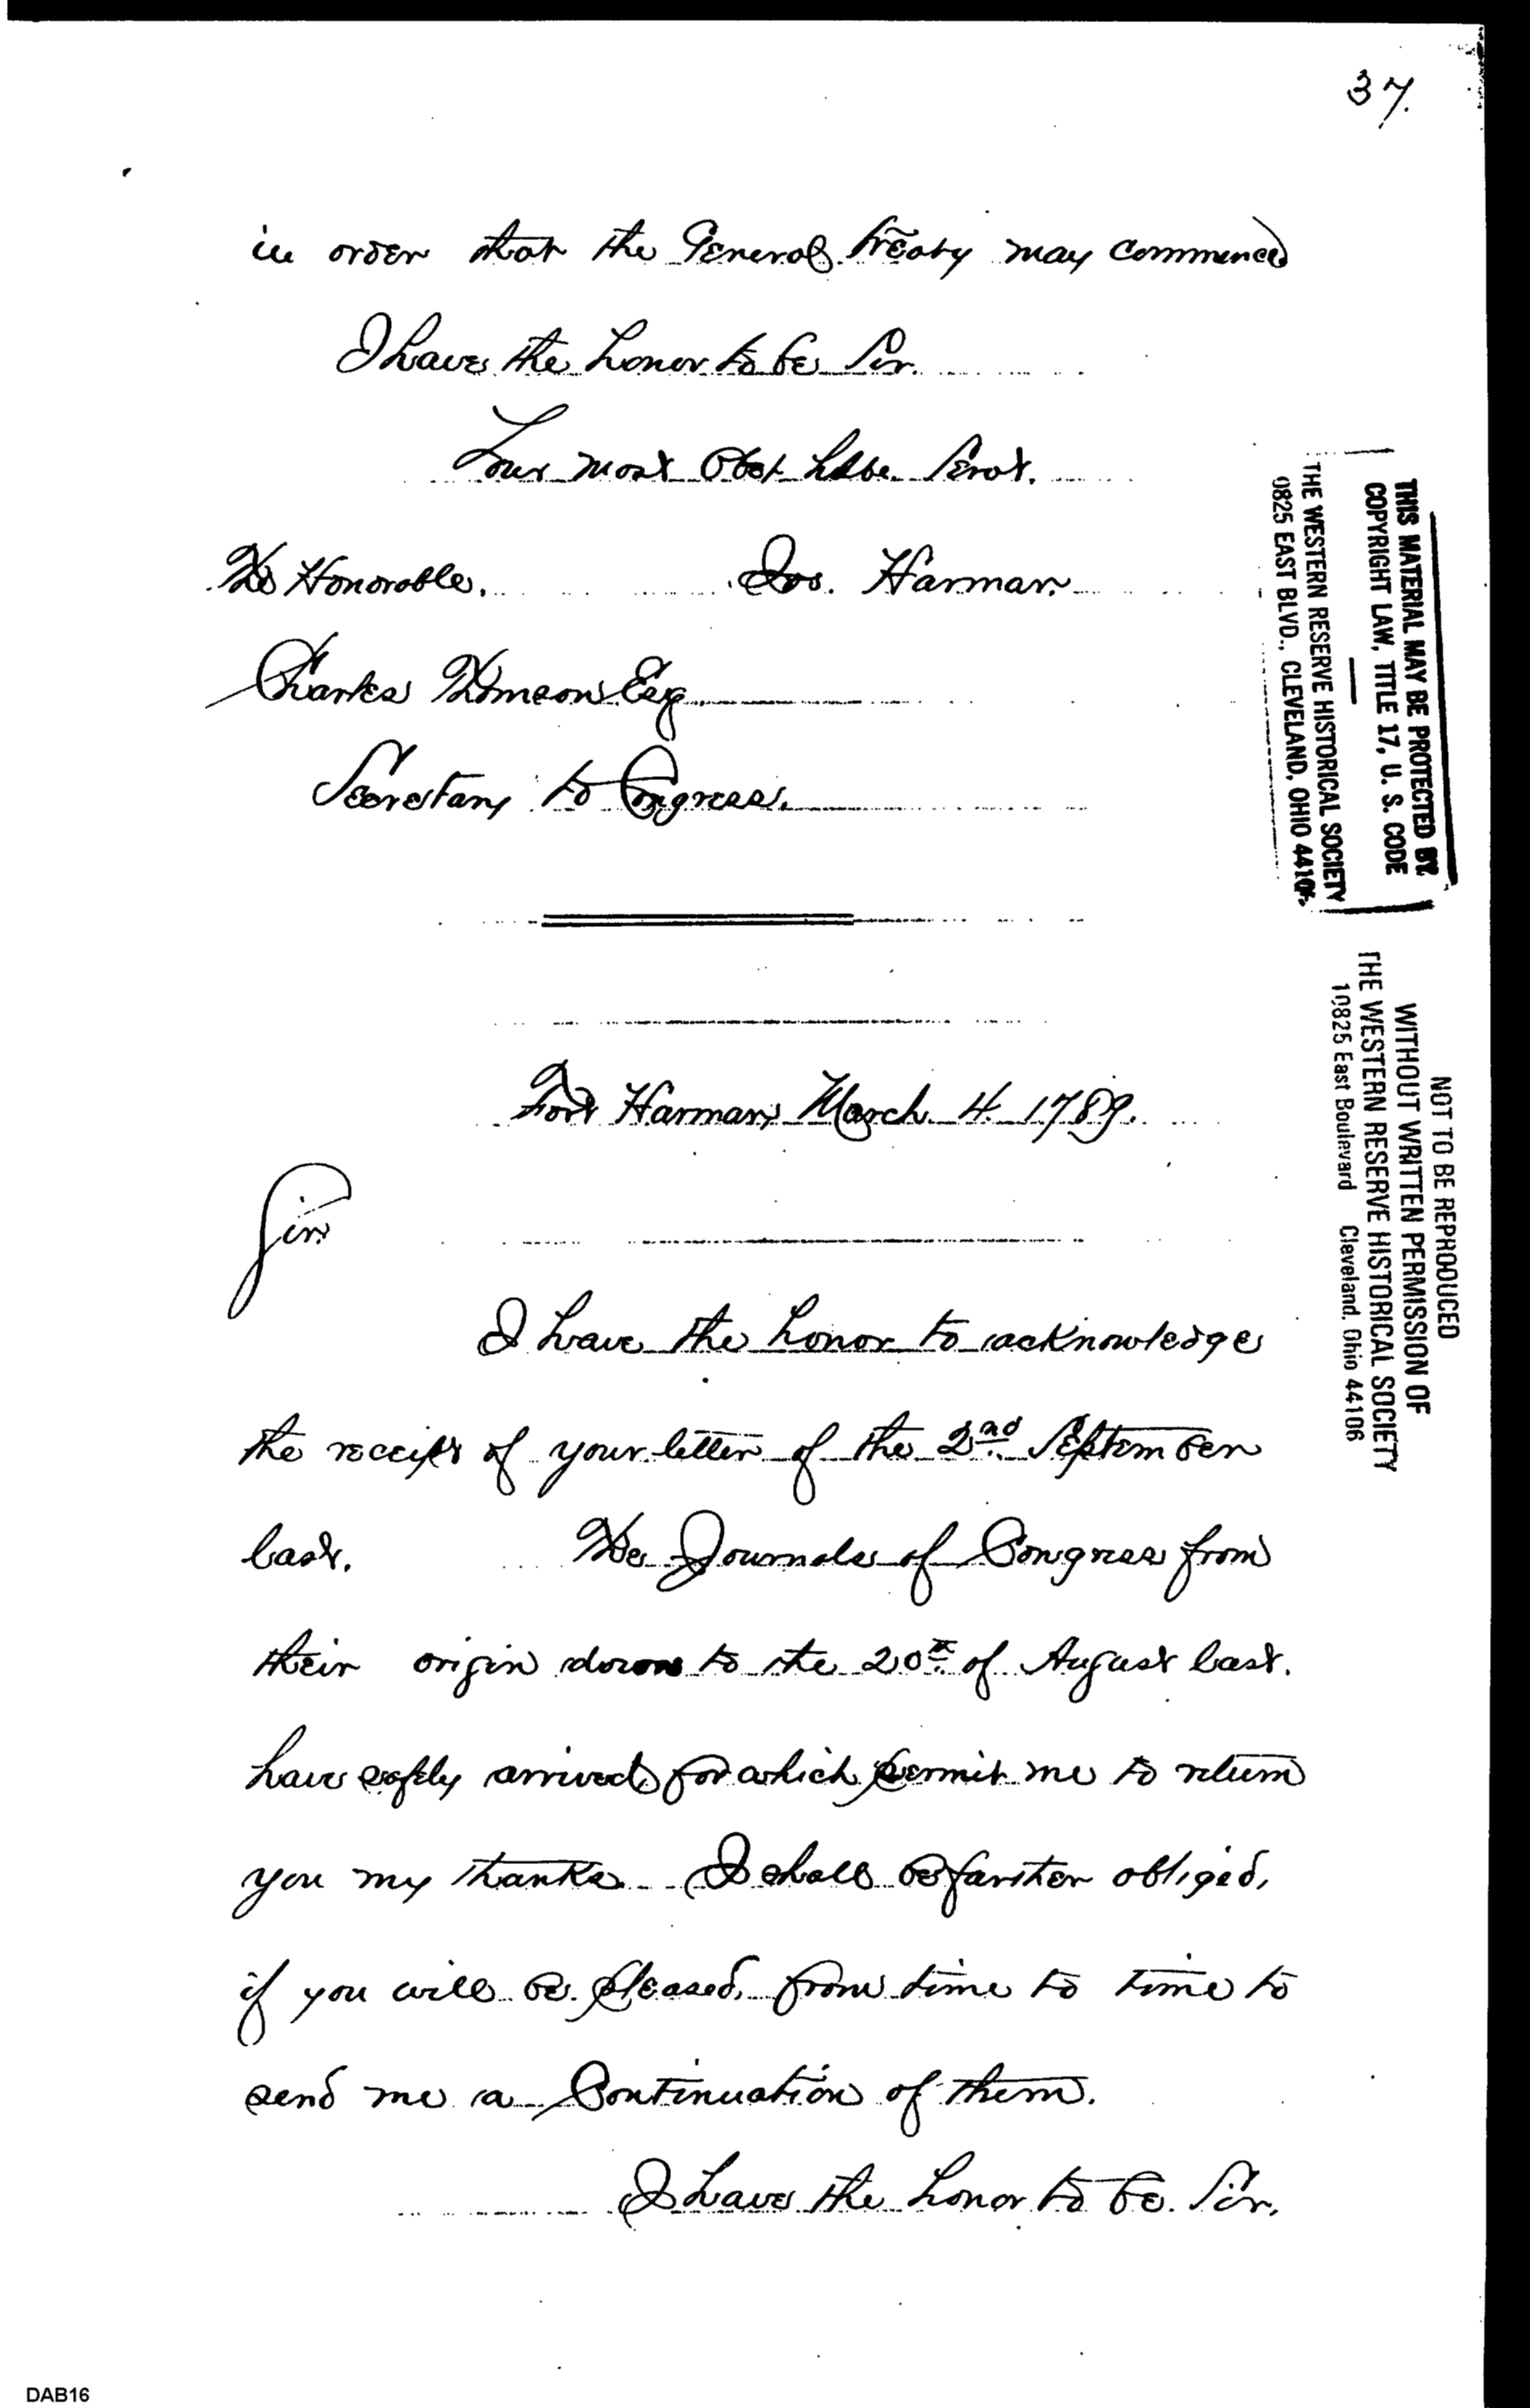 37.
in order that the General treaty may commence
I have the honor to be Sir.
Your most Obet hbbe. Servt.
The Honorable. Jos. Harmar.
Charles Thomson Esq
Secretary to Congress.
Fort Harmar, March 4. 1789.
Sir
I have the honor to acknowledge
the receipt of your letter of the 2nd September
last. The Journals of Congress from
their origin down to the 20th of August last.
have safely arrived, for which permit me to return
you my thanks. I shall be farther obliged,
if you will be pleased, from time to time to
send me a Continuation of them.
I have the honor to be. Sir.
THIS MATERIAL MAY BE PROTECTED BY
COPYRIGHT LAW, TITLE 17, U. S. CODE
THE WESTERN RESERVE HISTORICAL SOCIETY
0825 EAST BLVD., CLEVELAND, OHIO 44106
NOT TO BE REPRODUCED
WITHOUT WRITTEN PERMISSION OF
THE WESTERN RESERVE HISTORICAL SOCIETY
10825 East Boulevard Cleveland, Ohio 44106
DAB16